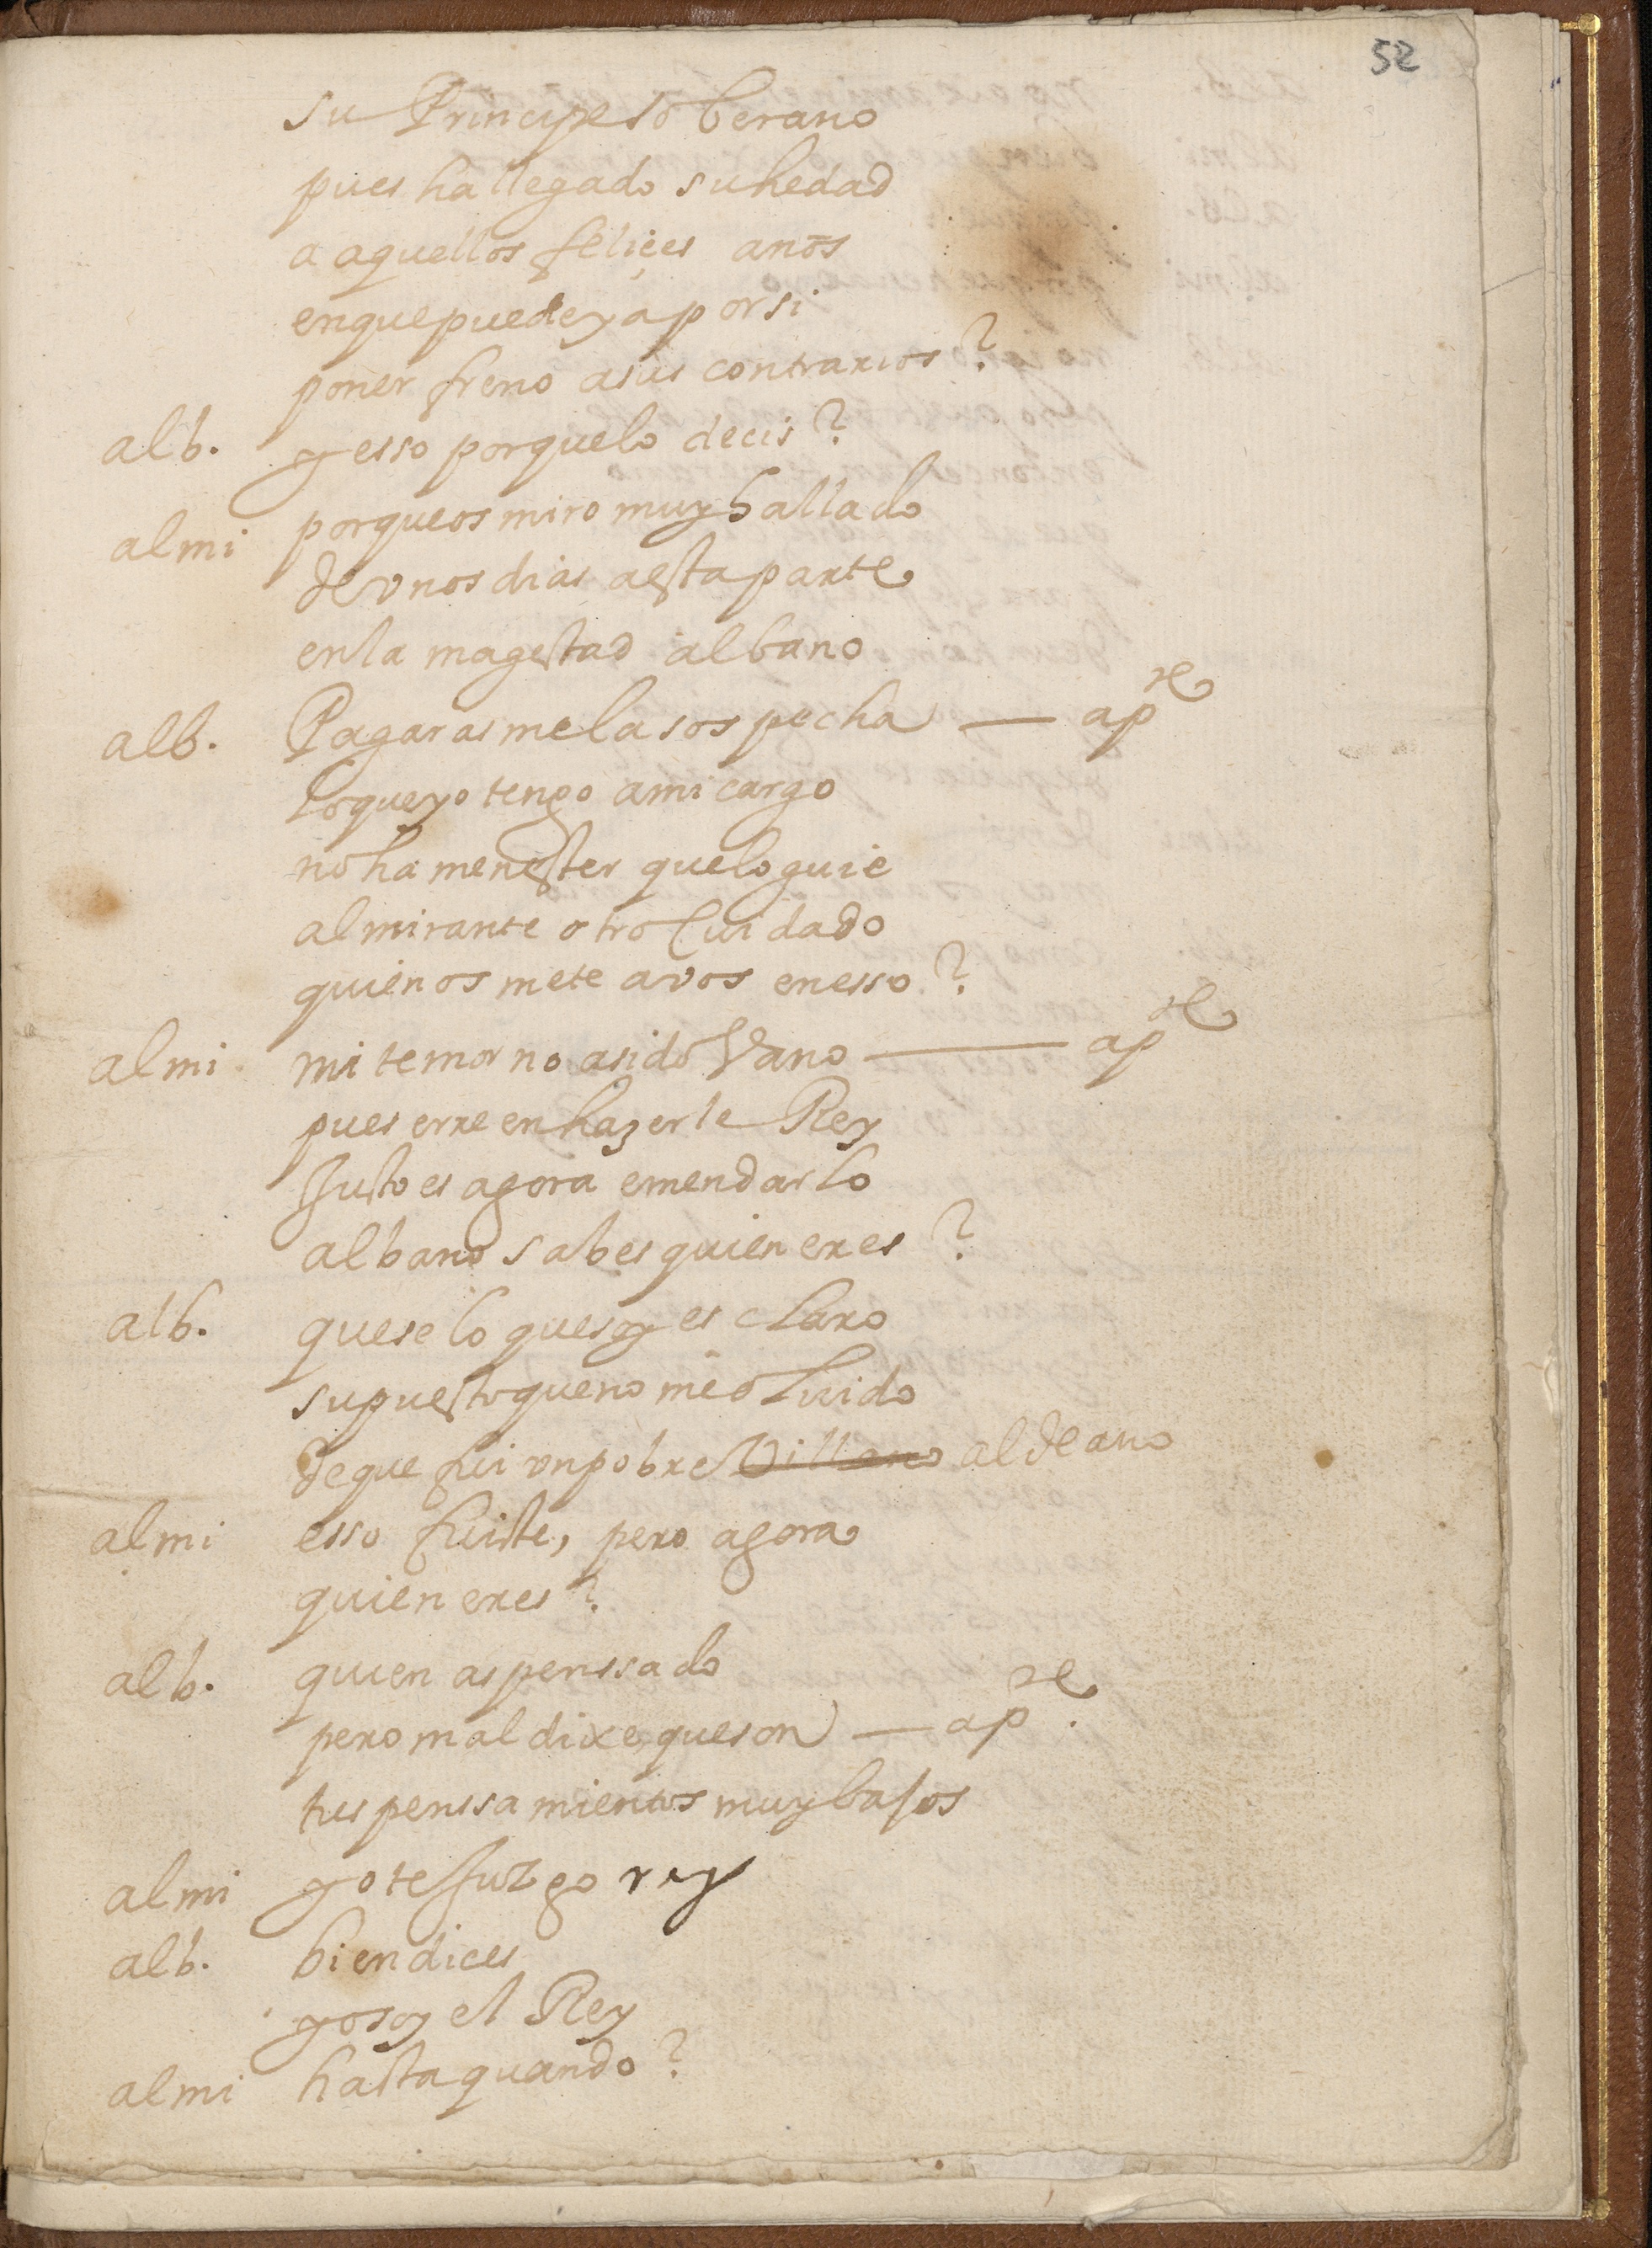 52
su Principe soberano
pues ha llegado su hedad
a aquellos feliçes años
en que puede ya por si
poner freno a sus contrarios?
alb. y esso porque lo decis?
almi porque os miro muy hallado
de vnos dias a esta parte
en la magestad albano
alb. Pagaras me la sospecha — ap.te
lo que yo tengo a mi cargo
no ha menester que lo guie
almirante otro Cuidado
quien os mete a vos en esso?
almi. mi temor no a sido Vano — ap.te
pues erre en hazerle Rey
Justo es agora emendarlo
albano sabes quien eres?
alb. que se lo que soy es claro
supuesto que no me oluido
de que fui vn pobre Villano aldeano
almi esso fuiste, pero agora
quien eres?
alb. quien as penssado
pero mal dixe, que son — ap.te
tus penssamientos muy bajos
almi yo te Juzgo rey
alb. bien dices
yo soy el Rey
almi hasta quando?